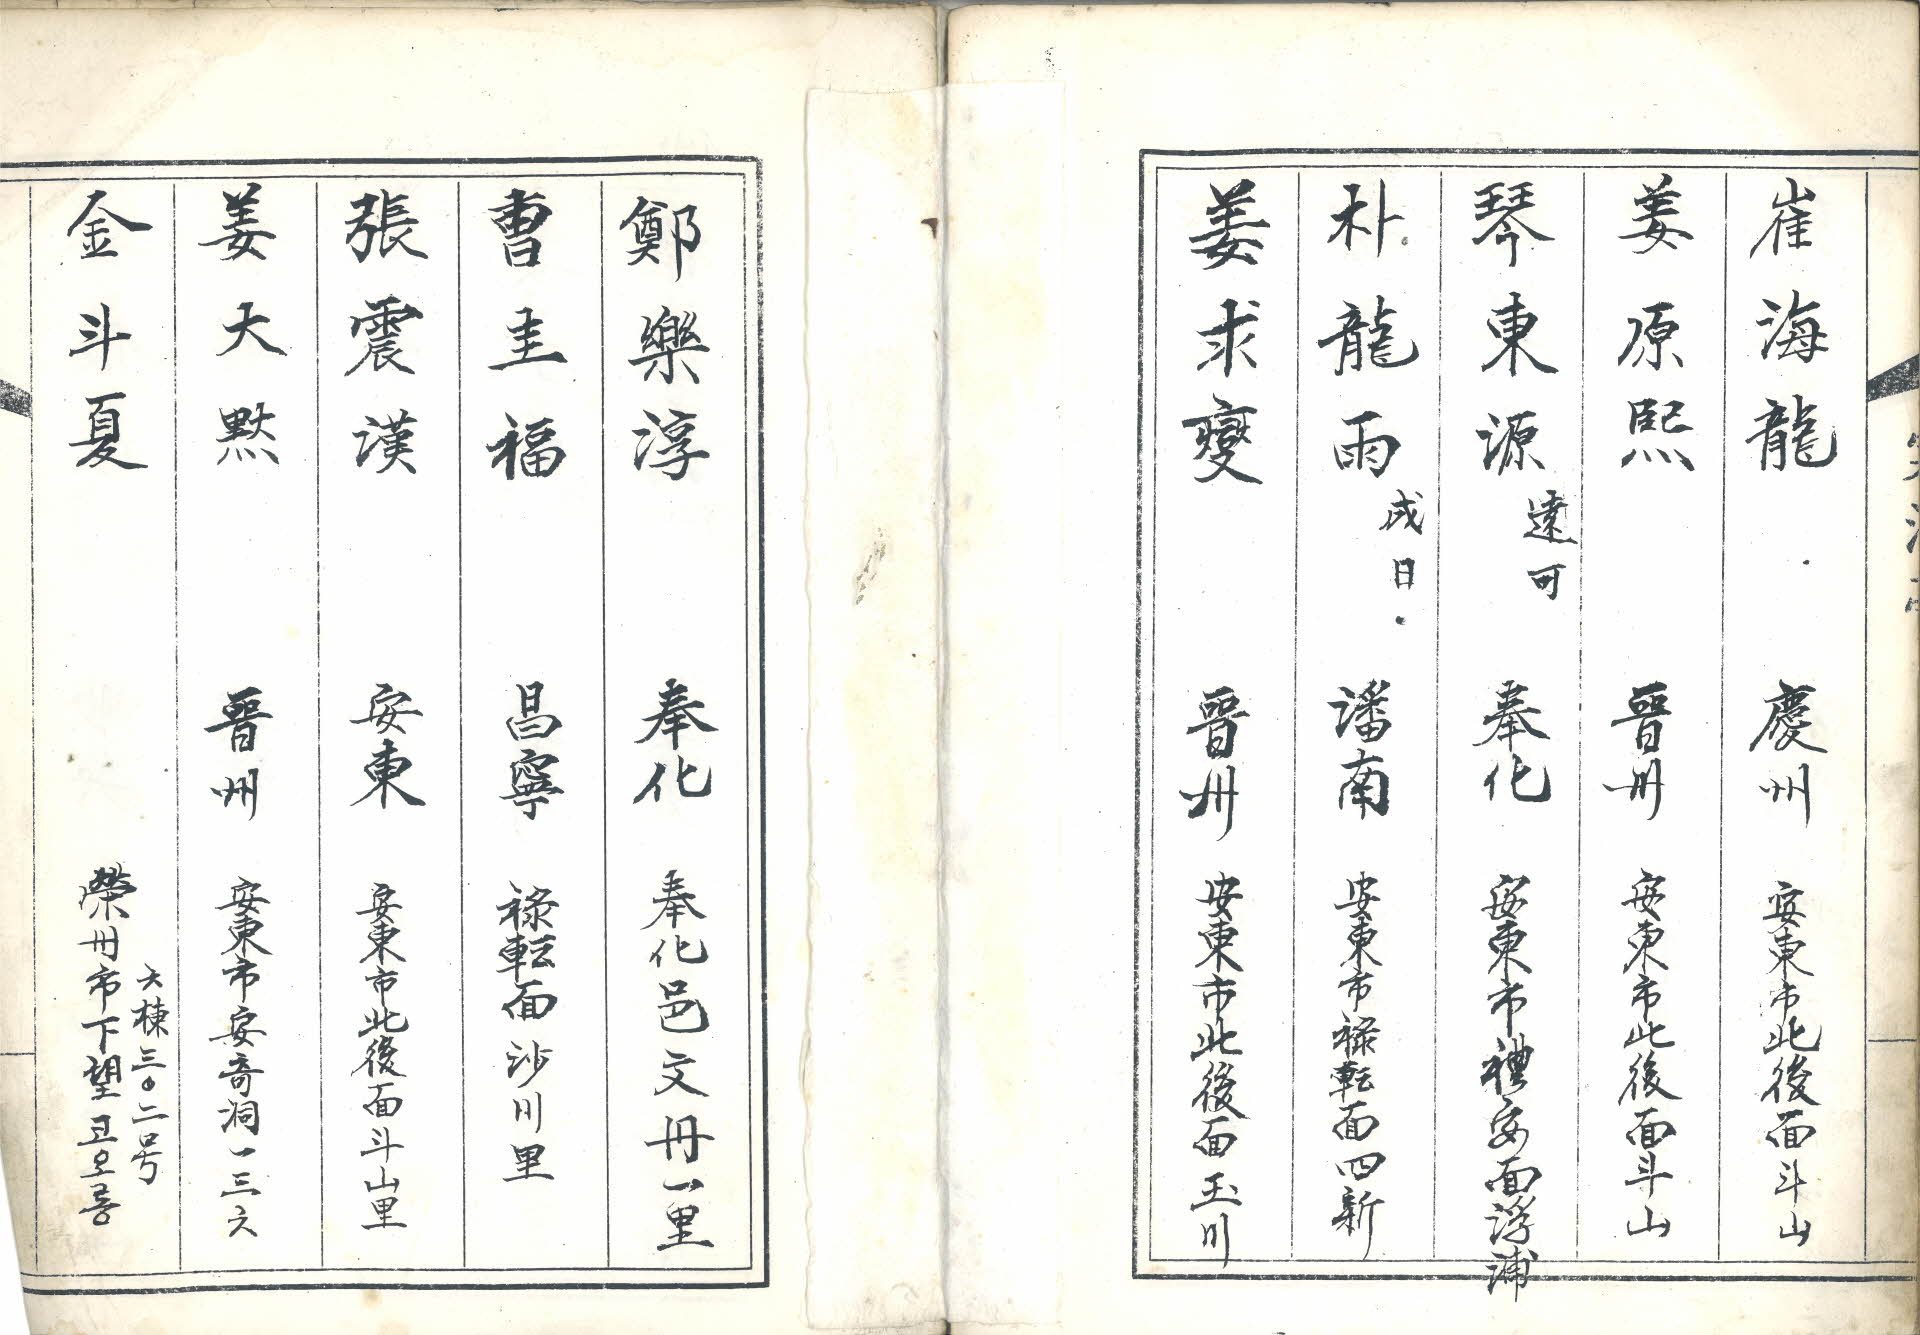 崔海龍 慶州 安東市北後面斗山
姜原熙 晉州 安東市北後面斗山
琴東源 遠可 奉化 安東市禮安面浮浦
朴龍雨 戌日 潘南 安東市祿転面四新
姜求燮 晉州 安東市北後面玉川
鄭樂淳 奉化 奉化邑文丹一里
曺圭福 昌寧 祿転面沙川里
張震漢 安東 安東市北後面斗山里
姜大默 晉州 安東市安奇洞一三六
金斗夏 榮州市下望코오롱
六棟三〇二号